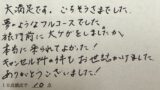 大満足です。ごちそうさまでした。
夢のようなフルコースでした。
旅行前に大ケガをしましたが、
本当に来られてよかった!
キャンセル料の件もお世話かけました。
ありがとうございました!
10点